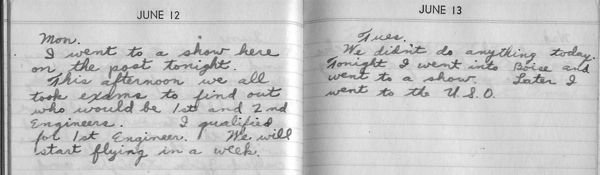 JUNE 12
Mon.
I went to a show here
on the post tonight.
This afternoon we all
took exams to find out
who would be 1st and 2nd
Engineers. I qualified
for 1st Engineer. We will
start flying in a week.
JUNE 13
Tues.
We didn't do anything today.
Tonight I went into Boise and
went to a show. Later I
went to the U.S.O.